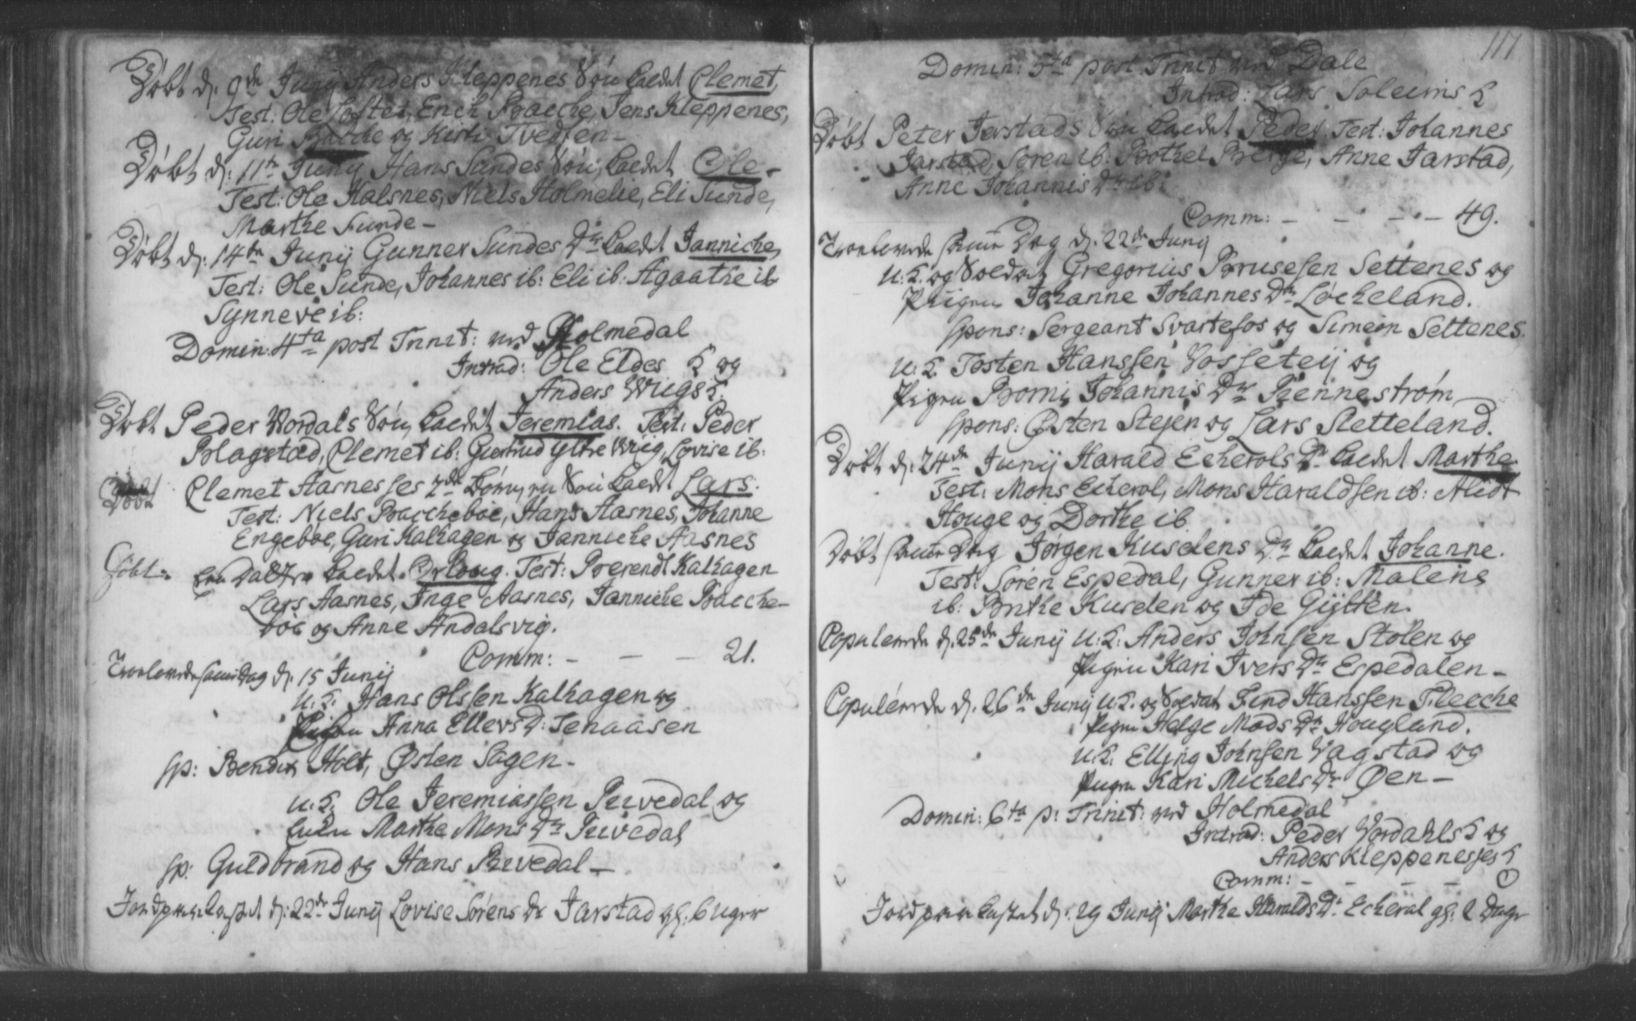 Døbt d: 9de Junij Anders Kleppenes Søn kaldet Clemet,
Test: Ole Tofte, Erich Baache, Jens Kleppenes,
Guri Baache og Kirsti Tvedten –
Døbt d: 11te Junij Hans Sundes Søn, kaldet Ole –
Test: Ole Halsnes, Niels Holmelie, Eli Sunde,
Marthe Sunde –
Døbt d: 14te Junij Gunner Sundes Dtr kaldet Janniche,
Test: Ole Sunde, Johannes ib: Eli ib: Agaathe ib
Synneve ib:
Domin: 4ta post Trinit: ved Holmedal
Introd: Ole Eldes K og
Anders Wiigs K.
Døbt Peder Vordals Søn kaldet Jeremias. Test: Peder
Blagstad, Clemet ib: Giertrud Yttre Wiig, Lovise ib:
Døbt Clemet Aasnesses 2de Børn, en Søn kaldt Lars.
Test: Niels Baccheboe, Hans Aasnes, Johanne
Engeboe, Guri Kalhagen og Janniche Aasnes
Døbt Een Datter kaldet Orloug. Test: Berendt Kalhagen
Lars Aasnes, Inge Aasnes, Janniche Bacche-
boe og Anne Andalsvig.
Comm: – – – 21.
Troelovede samme Dag d: 15 Junij
U: K: Hans Olssen Kalhagen og
Pigen Anna Ellevs D: Tenaasen
Sp: Bendix Holt, Østen Sagen –
U: K. Ole Jeremiassen Revedal og
Enken Marthe Mons Dtr Revedal
Sp: Guldbrand og Hans Revedal –
Jordpaakastet d: 22de Junij Lovise Sørens Dr Jarstad gl: 6 uger
117
Domin: 5ta post Trinit ved Dale
Introd: Lars Soleims K
Døbt Peter Jarstads Søn kaldet Peder. Test: Johannes
Jarstad, Søren ib: Bothel Berge, Anne Jarstad,
Anne Johannis Dtr ib:
Comm: – – – – 49.
Troelovede samme Dag d: 22de Junij
U: K. og Soldat Gregorius Brusesen Settenes og
Pigen Johanne Johannes Dtr Løcheland.
Spons: Sergeant Svartefos og Simeon Settenes.
U: K Tosten Hanssen Vosseteij og
Pigen Borni Johannis Dtr Rennestrøm
Spons: Østen Steien og Lars Sletteland.
Døbt d: 24de Junij Harald Echerols Dr kaldet Marthe
Test: Mons Echerol, Mons Haraldsen ib: Alidt
Houge og Dorthe ib
Døbt samme Dag Jørgen Kuselens Dtr kaldet Johanne.
Test: Søren Espedal, Gunner ib: Malene
ib: Brithe Kuselen og Ide Gijtten.
Copuleerede d. 25de Junij U: K: Anders Johnsen Stølen og
Pigen Kari Ivers Dtr Espedalen –
Copuleerede d. 26de Junij U: K. og Soldat Find Hanssen Fleeche
Pigen Helge Mads Dtr Hougland.
U: K. Elling Johnsen Vagstad og
Pigen Kari Michels Dtr Øen –
Domin: 6ta p: Trinit: ved Holmedal
Introd: Peder Vordahls K og
Anders Kleppenesses K
Comm: – – – 0
Jordpaakastet d: 29 Junij Marthe Haralds D: Echerol gl: 2 Dage